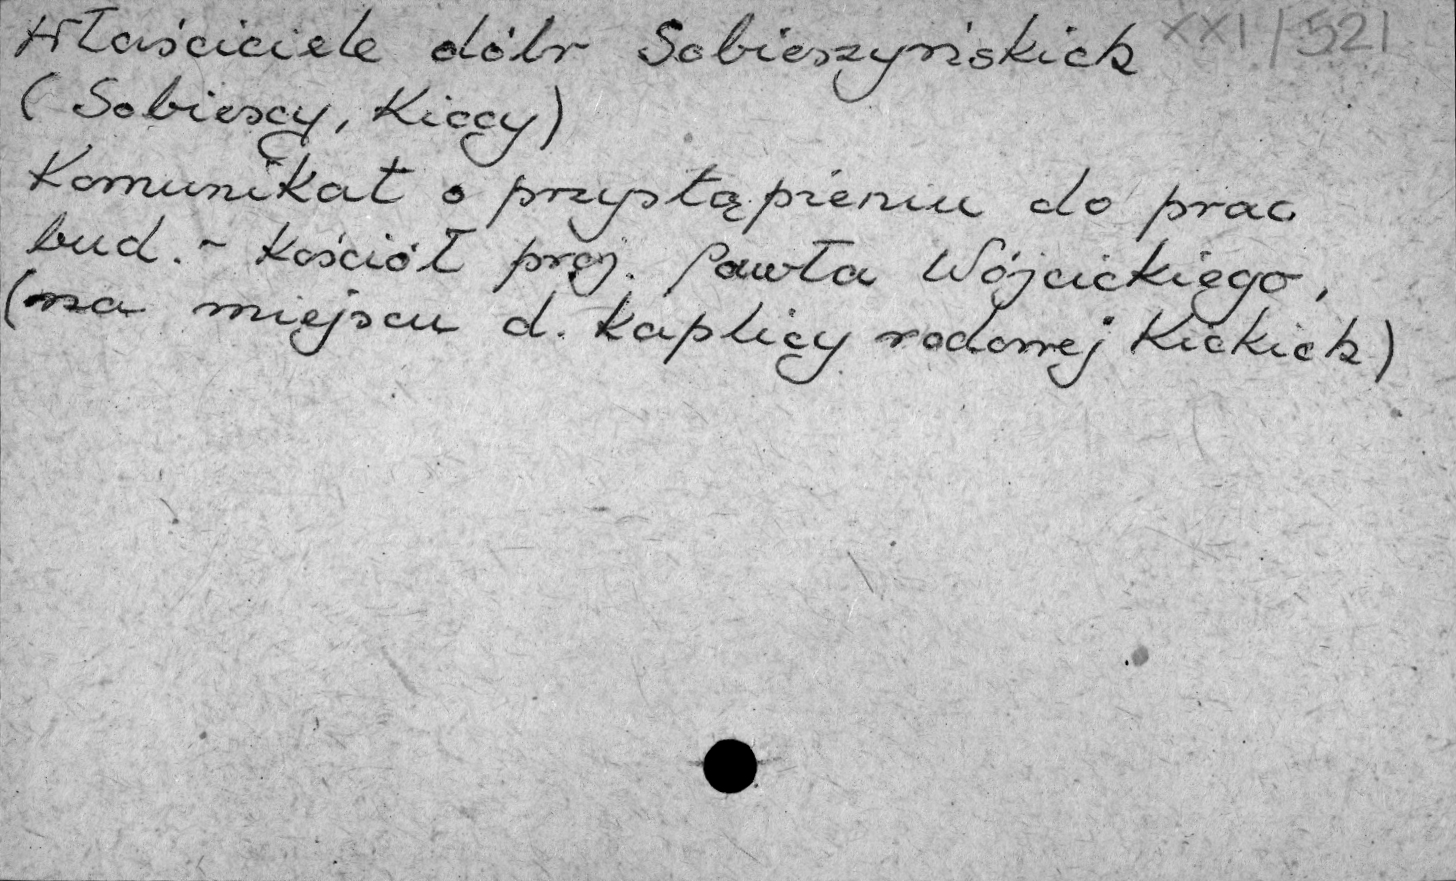 Właściciele dóbr Sobieszyńskich XXI/521
(Sobiescy, Kiccy)
Komunikat o przystąpieniu do prac
bud. - Kościół proj. Pawła Wójcickiego,
(na miejscu d. kaplicy rodowej Kickich)